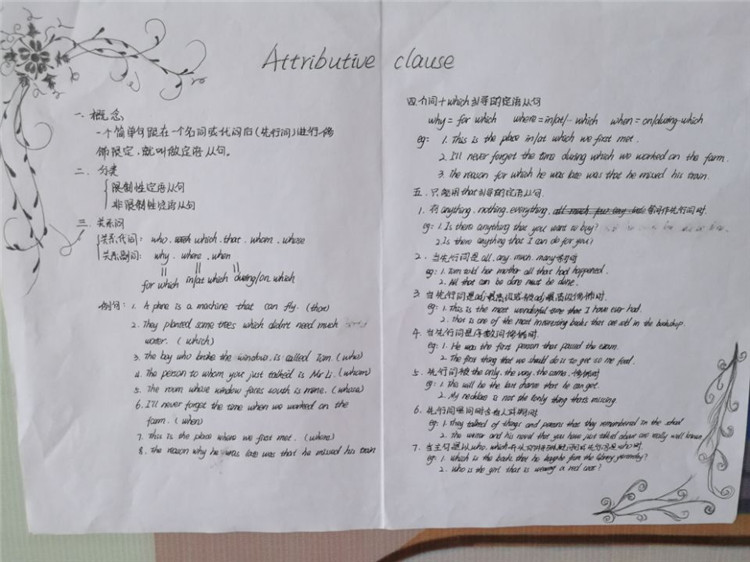 Attributive clause
一. 概念:
一个简单句跟在一个名词或代词后(先行词)进行修
饰限定,就叫做定语从句。
二. 分类
限制性定语从句
非限制性定语从句
三. 关系词
关系代词: who. which. that. whom. whose
关系副词: why. where. when
for which in/at which during/on which
例句: 1. A plane is a machine that can fly. (that)
2. They planted some trees which didn't need much
water. (which)
3. The boy who broke the window is called Tom. (who)
4. The person to whom you just talked is Mr Li. (whom)
5. The room whose window faces south is mine. (whose)
6. I'll never forget the time when we worked on the
farm. (when)
7. This is the place where we first met. (where)
8. The reason why he was late was that he missed his train
四. 介词+which引导的定语从句
why = for which where = in/at/- which when = on/during which
eg: 1. This is the place in/at which we first met.
2. I'll never forget the time during which we worked on the farm.
3. The reason for which he was late was that he missed his train.
五. 只能用that引导的定语从句.
1. 有anything. nothing. everything. 等词作先行词时.
eg: 1. Is there anything that you want to buy?
2. Is there anything that I can do for you?
2. 当先行词是all. any. much. many修饰时
eg: 1. Tom told her mother all that had happened.
2. All that can be done must be done.
3. 当先行词是adj最高级或被adj最高级修饰时.
eg: 1. This is the most wonderful time that I have ever had.
2. This is one of the most interesting books that are sold in the bookshop.
4. 当先行词是序数词修饰时.
eg: 1. He was the first person that passed the exam.
2. The first thing that we should do is to get some food.
5. 先行词被the only. the very. the same. 修饰时
eg: 1. This will be the last chance that he can get.
2. My necklace is not the only thing that's missing.
6. 先行词里同时含有人或物时
eg: 1. They talked of things and persons that they remembered in the school
2. The writer and his novel that you have just talked about are really well known
7. 当主句是以who. which
eg: 1. Which is the book that he bought from the library yesterday?
2. Who is the girl that is wearing a red coat?